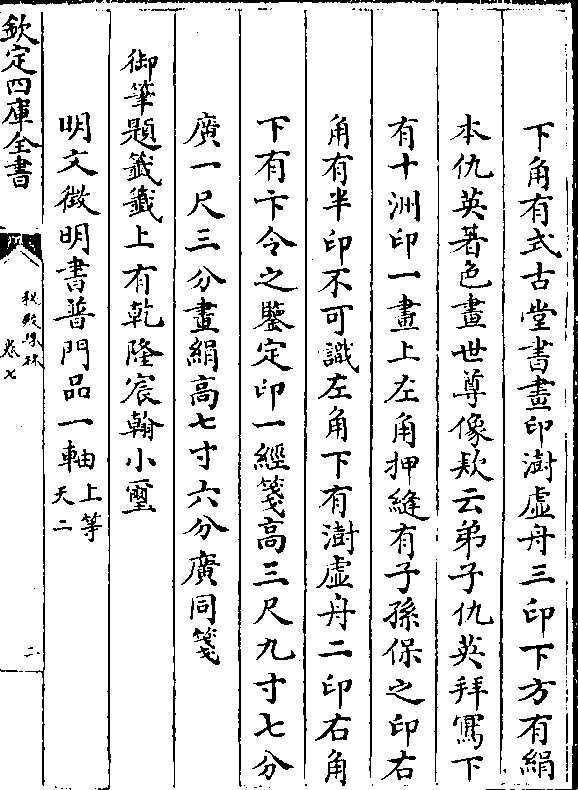 下角有式古堂書畫印澍虛舟三印下方有絹
本仇英著色畫世尊像款云弟子仇英拜寫下
有十洲印一畫上左角押縫有子孫保之印右
角有半印不可識左角下有澍虛舟二印右角
下有卞令之鑒定印一經箋高三尺九寸七分
廣一尺三分畫絹高七寸六分廣同箋
御筆題籤籤上有乾隆宸翰小璽
明文徵明書普門品一軸上等
天二
欽定四庫全書
秘殿珠林
卷七
二